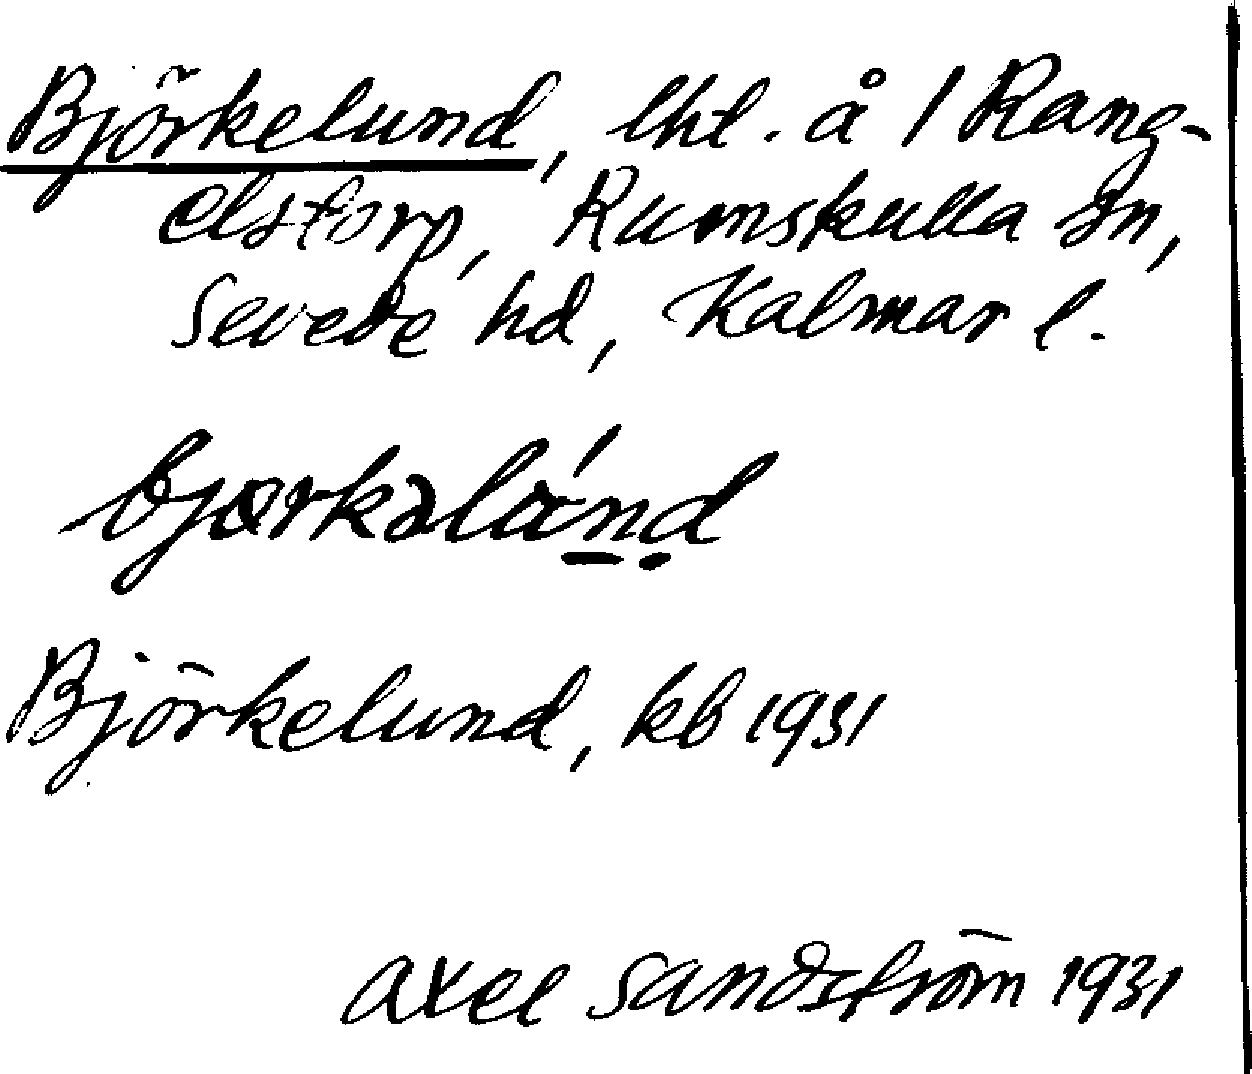 Björkelund, lht. å 1 Rang-
elstorp, Rumskulla sn,
Sevede hd, Kalmar l.
bjørkəlánd
Björkelund, kb 1931
Axel Sandström 1931